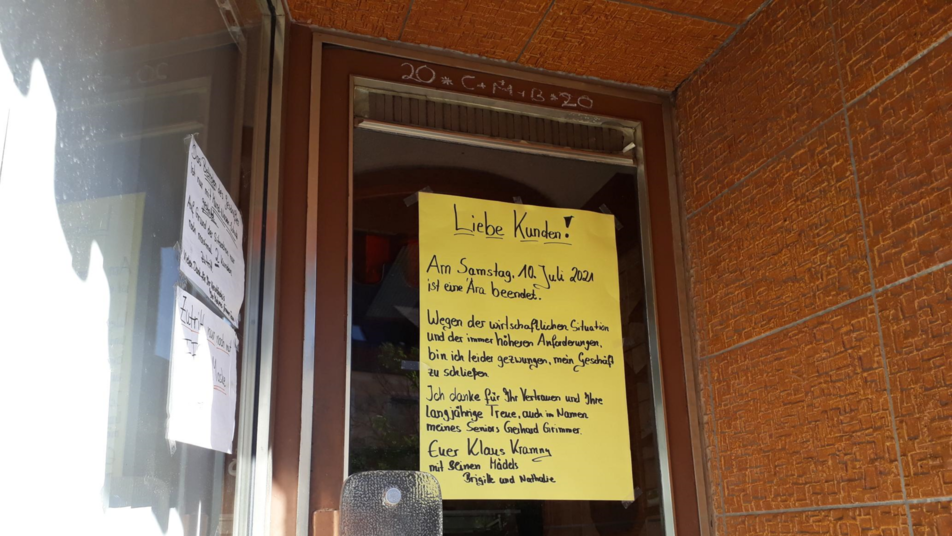 20 * C + M + B * 20
Liebe Kunden!
Am Samstag, 10. Juli 2021
ist eine Ära beendet.
Wegen der wirtschaftlichen Situation
und der immer höheren Anforderungen,
bin ich leider gezwungen, mein Geschäft
zu schließen
Ich danke für Ihr Vertrauen und Ihre
langjährige Treue, auch im Namen
meines Seniors Gerhard Grimmer.
Euer Klaus Kramny
mit seinen Mädels
Brigitte und Nathalie
Zutritt nur noch mit
Maske